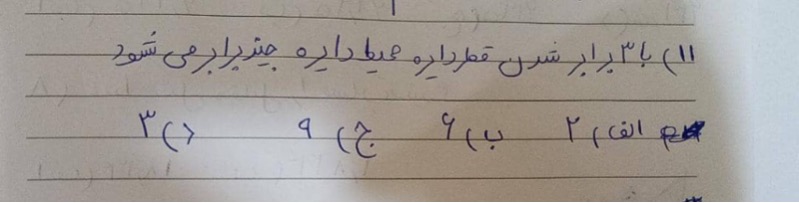 ۱۱) با ۳ برابر شدن قطر دایره محیط دایره چند برابر می شود
الف) ۲ ب) ۶ ج) ۹ د) ۳